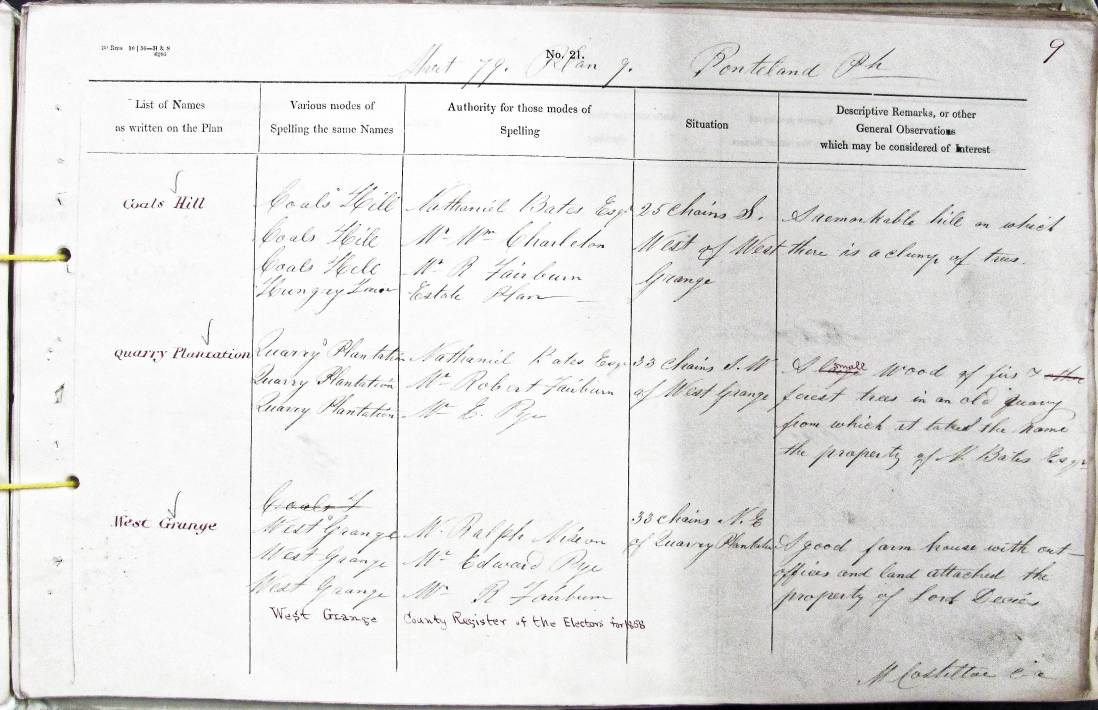 No. 21.
9
Sheet 79. Plan 9. Ponteland Ph
List of Names
as written on the Plan
Various modes of
Spelling the same Names
Authority for those modes of
Spelling
Situation
Descriptive Remarks, or other
General Observations
which may be considered of Interest
Coals Hill
Coals Hill
Coals Hill
Coals Hill
Hungry
Nathaniel Bates Esqr
Mr Wm Charleton
Mr R Fairburn
Estate Plan
25 chains S.
West of West
Grange
A remarkable hill on which
there is a clump of trees.
Quarry Plantation
Quarry Plantation
Quarry Plantation
Quarry Plantation
Nathaniel Bates Esqr
Mr Robert Fairburn
Mr E. Pye
33 chains S.W
of West Grange
A small wood of firs &
forest trees in an old quarry
from which it takes the name
the property of N. Bates Esqr
West Grange
Coals
West Grange
West Grange
West Grange
West Grange
Mr Ralph Nixon
Mr Edward Pye
Mr R Fairburn
County Register of the Electors for 1858
33 chains N.E
of Quarry Plantation
A good farm house with out
offices and land attached the
property of Lord Decies